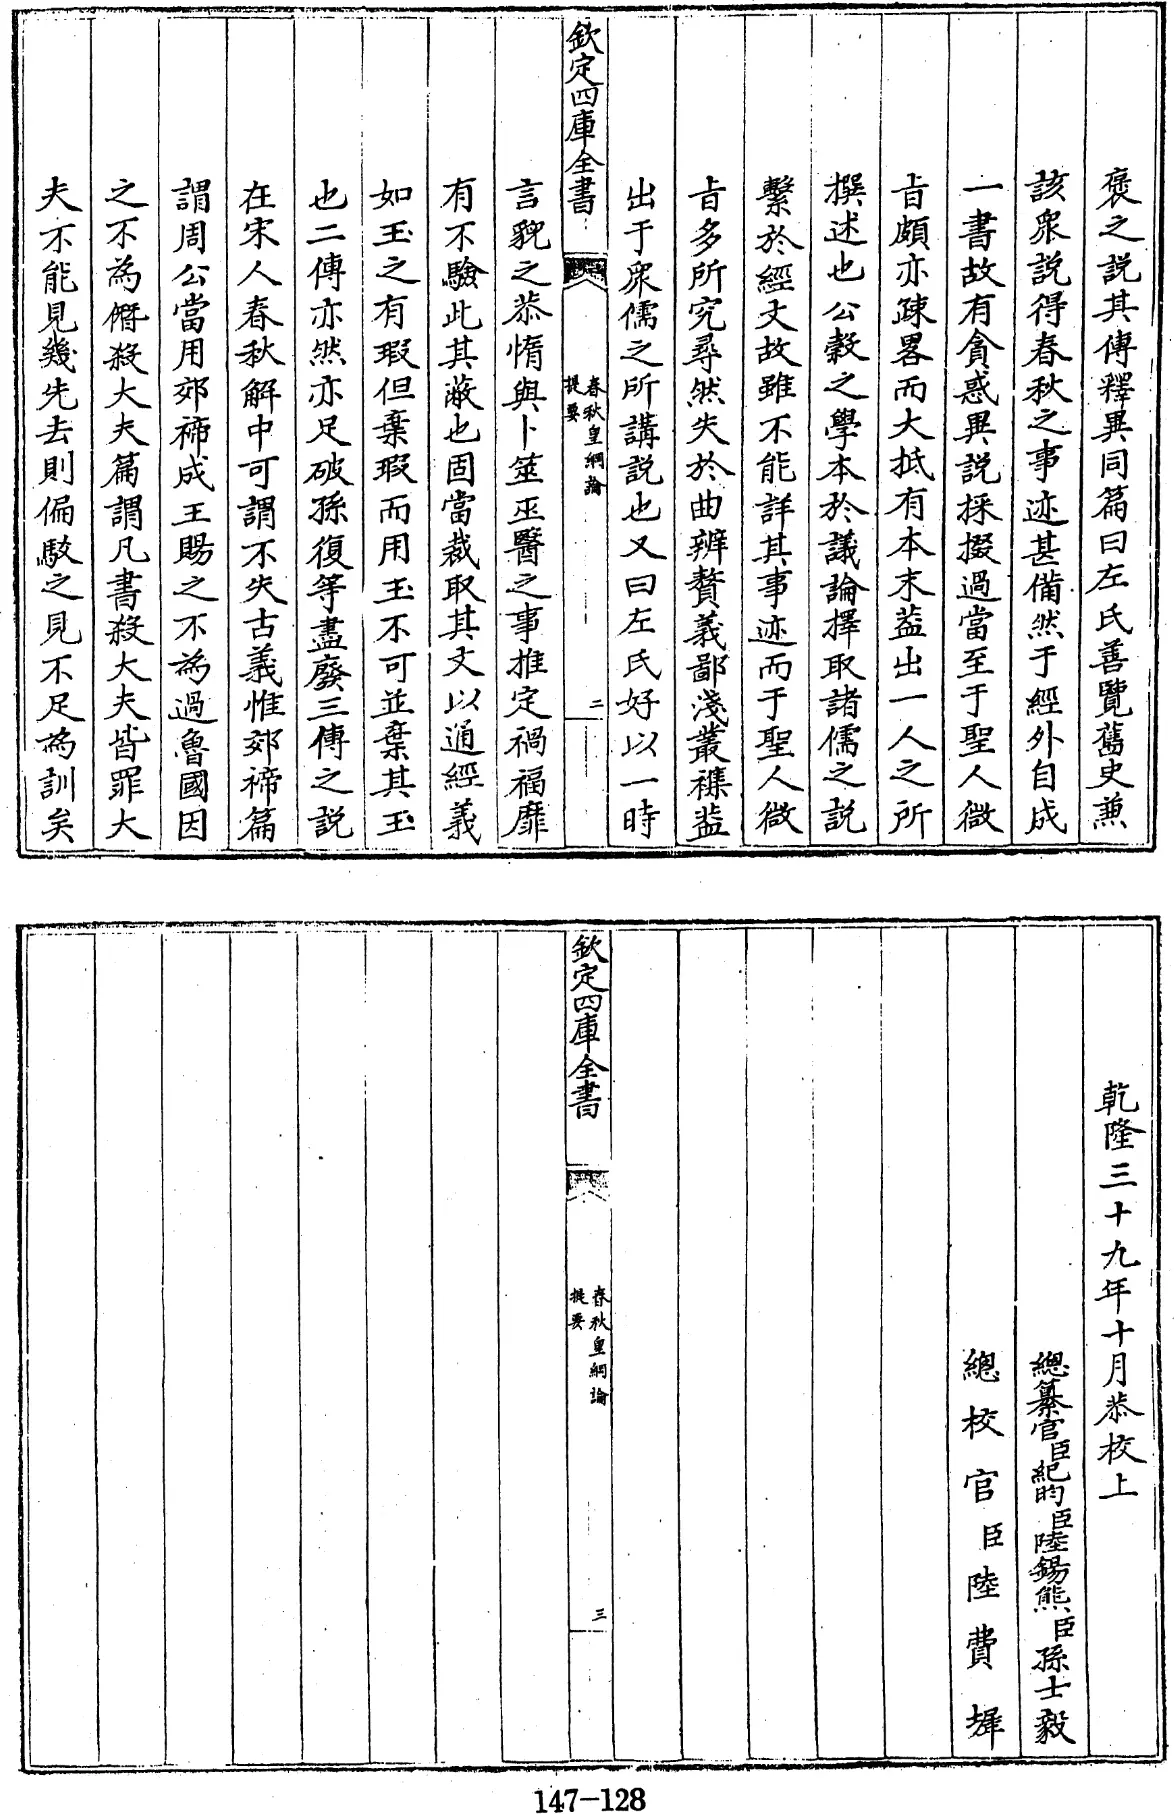 褒之説其傳釋異同篇曰左氏善覽舊史兼
該衆説得春秋之事迹甚備然于經外自成
一書故有貪惑異説採掇過當至于聖人微
旨頗亦疎畧而大抵有本末葢出一人之所
撰述也公穀之學本於議論擇取諸儒之説
繫於經文故雖不能詳其事迹而于聖人微
旨多所究尋然失於曲辨贅義鄙淺叢襍葢
出于衆儒之所講説也又曰左氏好以一時
欽定四庫全書
春秋皇綱論
提要
二
言貌之恭惰與卜筮巫醫之事推定禍福靡
有不驗此其蔽也固當裁取其文以通經義
如玉之有瑕但棄瑕而用玉不可並棄其玉
也二傳亦然亦足破孫復等盡廢三傳之説
在宋人春秋解中可謂不失古義惟郊禘篇
謂周公當用郊禘成王賜之不為過魯國因
之不為僭殺大夫篇謂凡書殺大夫皆罪大
夫不能見幾先去則偏駮之見不足為訓矣
乾隆三十九年十月恭校上
總纂官臣紀昀臣陸錫熊臣孫士毅
總校官臣陸費墀
欽定四庫全書
春秋皇綱論
提要
三
147-128